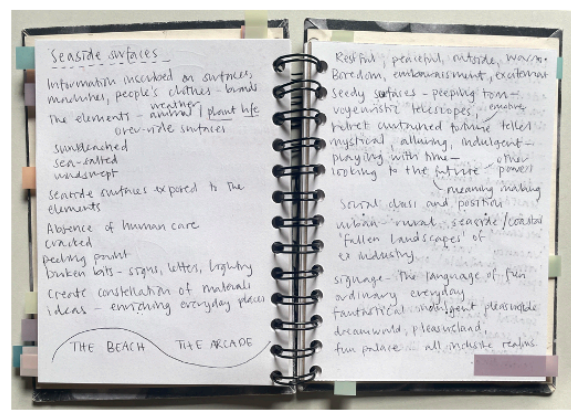 Seaside surfaces
Information inscribed on surfaces,
machines, people's clothes - brands
weather
The elements - animal / plant life
over-ride surfaces
sunbleached
sea-salted
windswept
seaside surfaces exposed to the
elements
Absence of human care
cracked
peeling paint
broken bits - signs, letters, lighting
Create constellation of materials
ideas - enriching everyday places
THE BEACH THE ARCADE
Restful, peaceful, outside, warm.
Boredom, embarrassment, excitement
Seedy surfaces - peeping tom -
voyeuristic telescopes,
velvet curtained fortune teller
mystical, alluring, indulgent -
playing with time -
other
looking to the future powers
meaning making
Social class and position
urban - rural, seaside/coastal
'fallen landscapes' of
ex industry
signage - the language of fun
ordinary everyday
fantastical indulgent pleasurable
dreamworld, pleasureland,
fun palace - all inclusive realms.